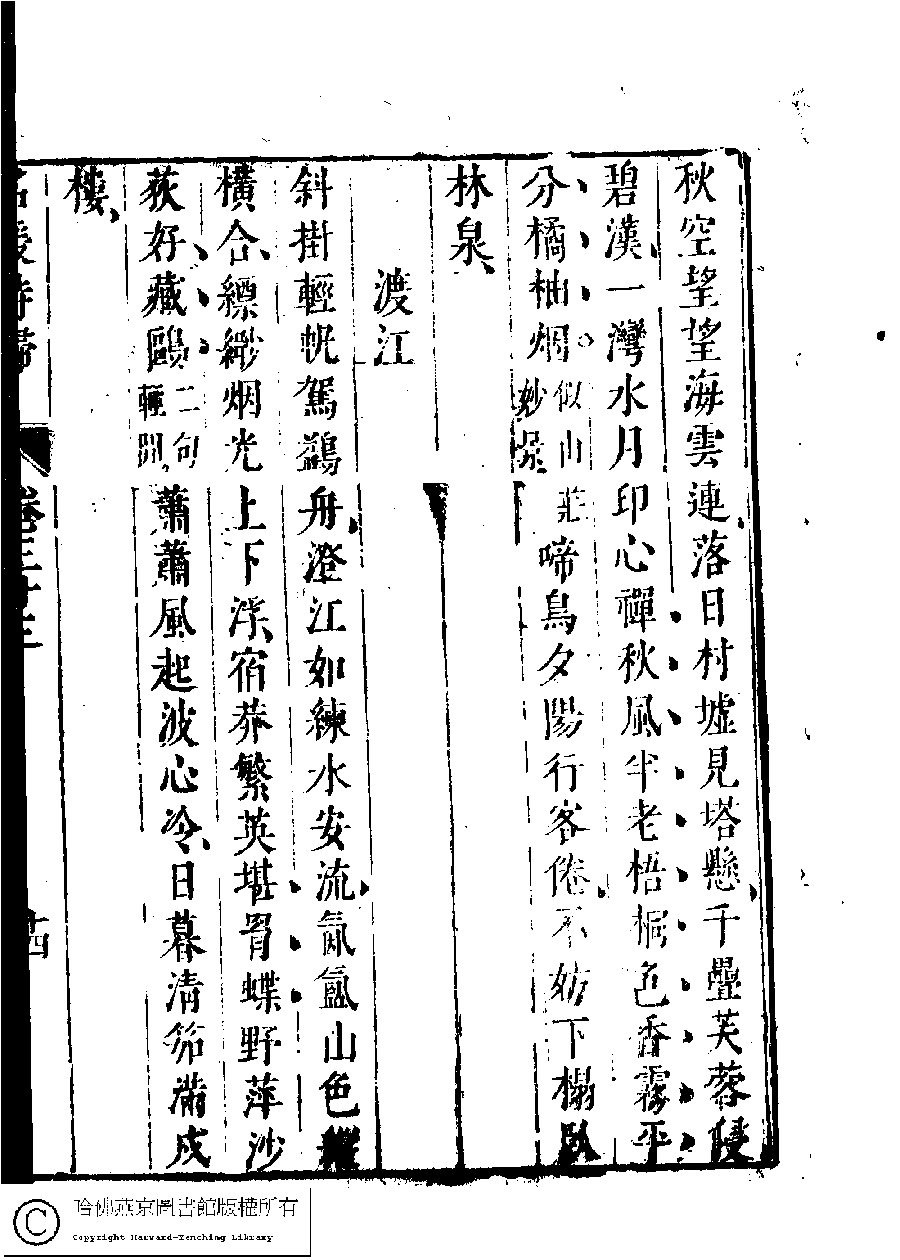 秋空望望海雲連落日村墟見塔懸千疊芙蓉侵
碧漢一灣水月印心禪秋風半老梧桐色香霧平
分橘柚烟似山莊妙景啼鳥夕陽行客倦不妨下榻臥
林泉
渡江
斜掛輕帆駕鷁舟澄江如練水安流氤氳山色縱
橫合縹緲烟光上下浮宿莽繁英堪胃蝶野萍沙
荻好藏鷗二句輕閒蕭蕭風起波心冷日暮清笳滿戍
樓
名媛詩歸
卷三十三
十四
哈佛燕京圖書館版權所有
Copyright Harvard-Yenching Library